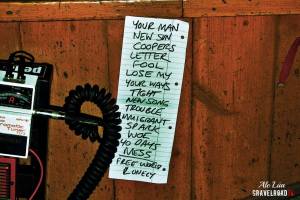 YOUR MAN
NEW SON
COOPERS
LETTER
FOOL
LOSE MY
YOUR WAYS
TIGHT
NEWSONG
TROUBLE
IMMIGRANT
SPARK
WOE
40 DAYS
MESS
FREE WORLD
LONELY
Chromatic
Tuner
GRAVELROAD